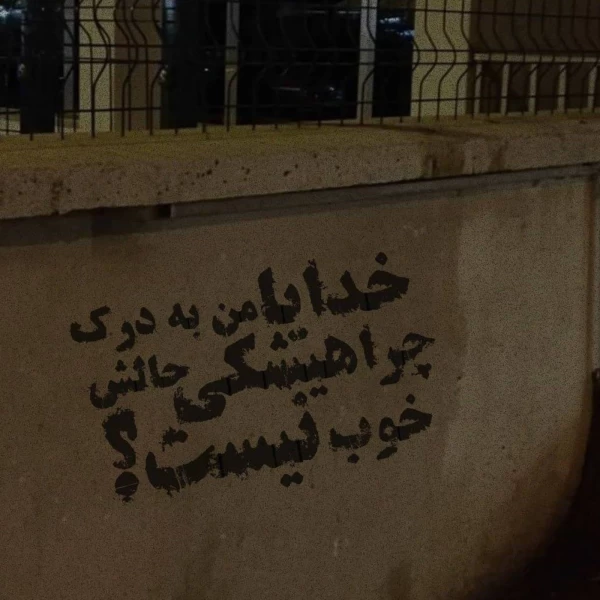 خدایا من به درک
چرا هیشکی حالش
خوب نیست؟